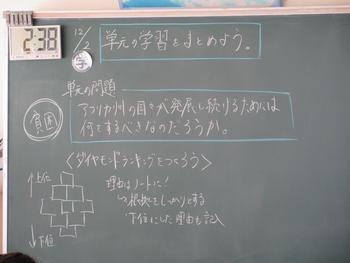 2:38
12/2
単元の学習をまとめよう。
学
単元の問題
貧困
アフリカ州の国々が発展し続けるためには
何をするべきなのだろうか。
〈ダイヤモンドランキングをつくろう〉
↑上位
理由はノートに!
↳根拠をしっかりとする
下位にした理由も記入
↓下位